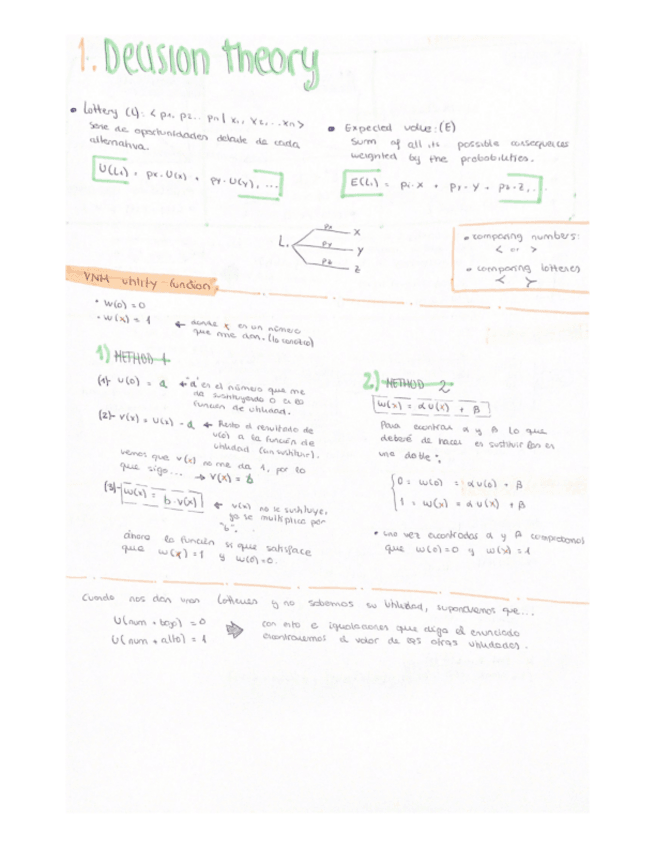 1. Decision theory
• Lottery (L): < p1, p2... pn | x1, x2, ...xn >
serie de oportunidades delade de cada
alternativa.
U(L1) = px·U(x) + py·U(y), ...
• Expected value: (E)
Sum of all its possible consequences
weighted by the probabilities.
E(L1) = p1·x + py·y + pz·z, ..
L. px x
py y
pz z
• comparing numbers:
< or >
• comparing lotteries
≺ ≻
VNM utility function
• w(0) = 0
• w(x) = 1 ← donde x es un número
que me dan. (lo canvio)
1) METHOD 1
(1)- u(0) = a ← "a" es el número que me
da sustituyendo 0 es la
función de utilidad.
(2)- v(x) = u(x) - a ← Resto el resultado de
u(0) a la función de
utilidad (un sustituir).
vemos que v(x) no me da 1, por lo
que sigo... → v(x) = b
(3)- w(x) = b·v(x) ← v(x) no le sustituye,
ya se multiplica por
"b".
ahora la función si que satisface
que w(x) = 1 y w(0) = 0.
2.) METHOD 2
w(x) = αu(x) + β
Para encontrar α y β lo que
deberé de hacer es sustituir en
una doble:
0 = w(0) = αu(0) + β
1 = w(x) = αu(x) + β
• una vez encontrados α y β comprobamos
que w(0)=0 y w(x)=1
Cuando nos dan unan lotteries y no sabemos su utilidad, supondremos que...
U(num + bajo) = 0
U(num + alto) = 1
con esto e igualaciones que diga el enunciado
encontraremos el valor de las otras utilidades.